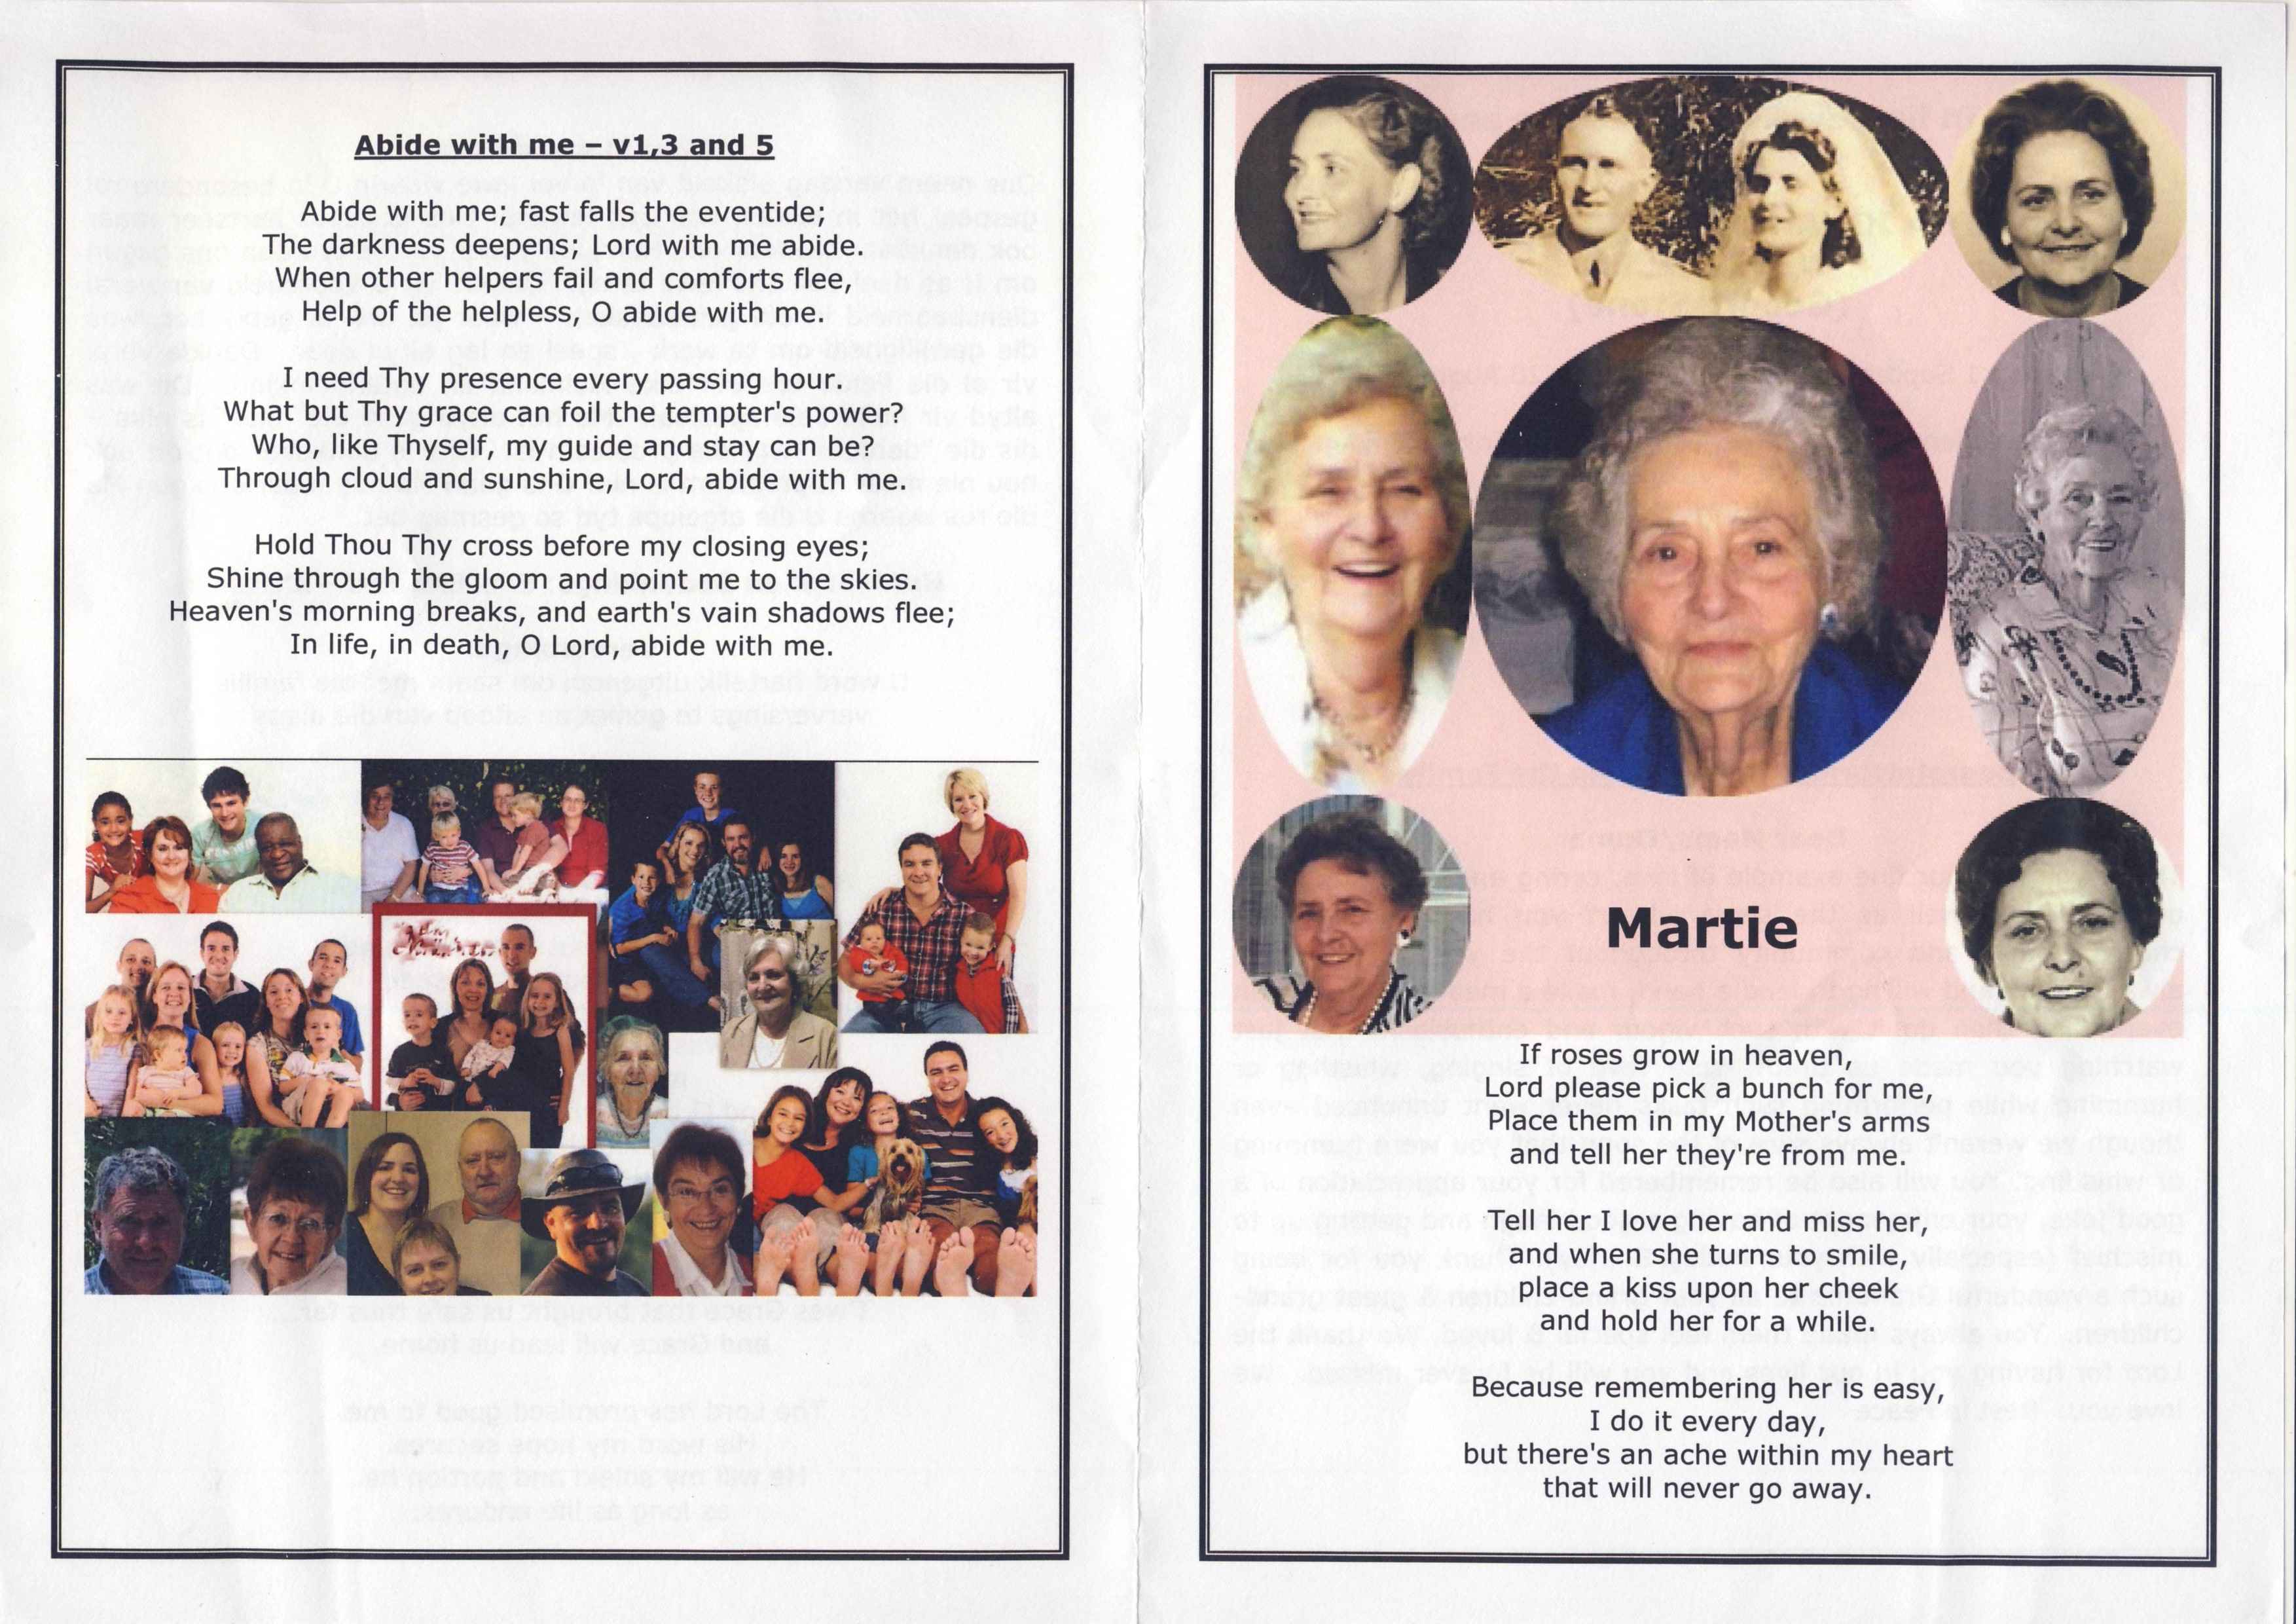 Abide with me – v1,3 and 5
Abide with me; fast falls the eventide;
The darkness deepens; Lord with me abide.
When other helpers fail and comforts flee,
Help of the helpless, O abide with me.
I need Thy presence every passing hour.
What but Thy grace can foil the tempter's power?
Who, like Thyself, my guide and stay can be?
Through cloud and sunshine, Lord, abide with me.
Hold Thou Thy cross before my closing eyes;
Shine through the gloom and point me to the skies.
Heaven's morning breaks, and earth's vain shadows flee;
In life, in death, O Lord, abide with me.
Martie
If roses grow in heaven,
Lord please pick a bunch for me,
Place them in my Mother's arms
and tell her they're from me.
Tell her I love her and miss her,
and when she turns to smile,
place a kiss upon her cheek
and hold her for a while.
Because remembering her is easy,
I do it every day,
but there's an ache within my heart
that will never go away.